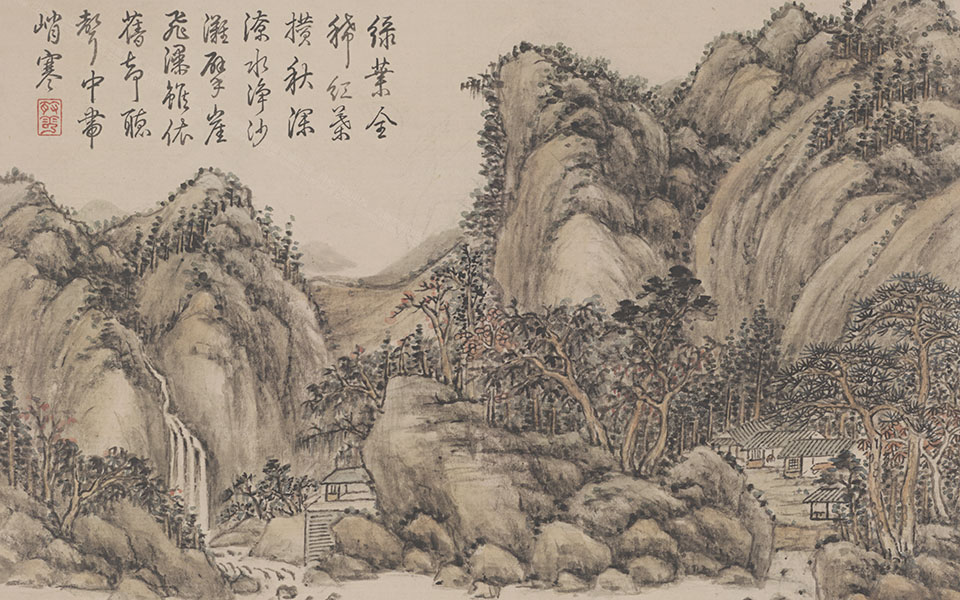 綠葉全
稀紅葉
攢秋深
潦水淨沙
灘擘崖
飛瀑雖依
舊却聽
聲中帶
峭寒